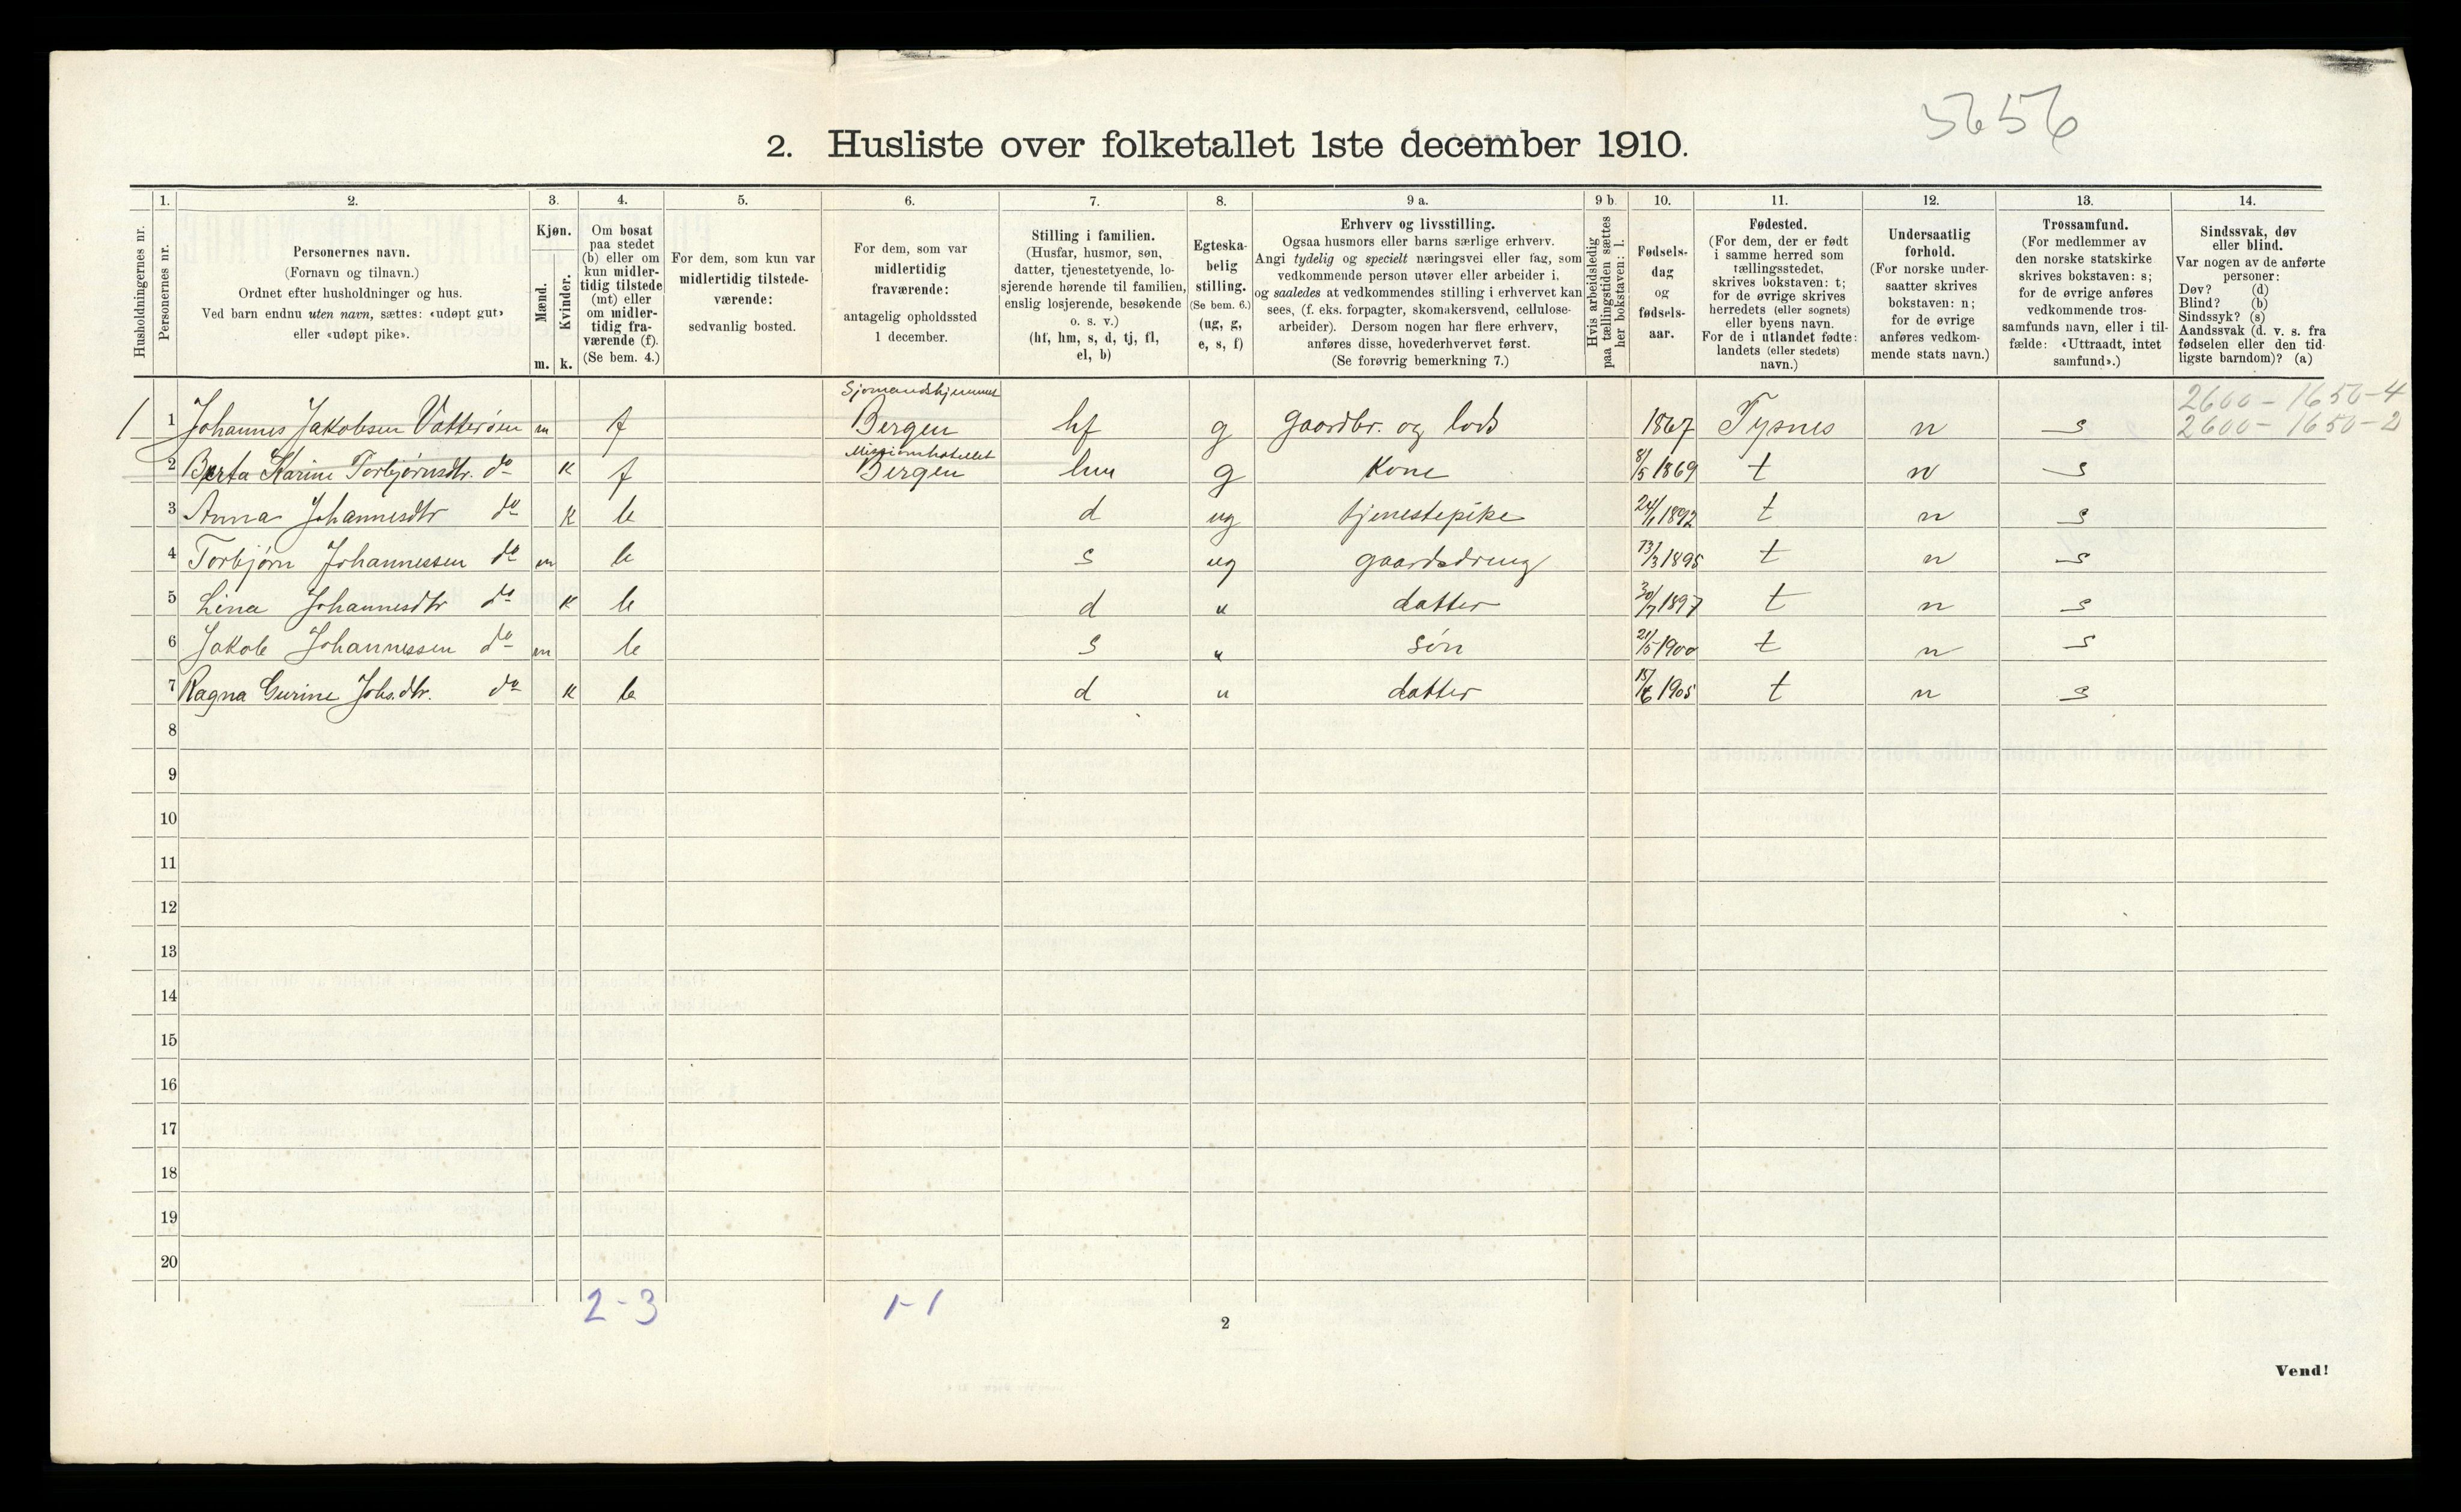 5656
2. Husliste over folketallet 1ste december 1910.
Husholdningernes nr.
1.
Personernes nr.
2.
Personernes navn.
(Fornavn og tilnavn.)
Ordnet efter husholdninger og hus.
Ved barn endnu uten navn, sættes: «udøpt gut»
eller «udøpt pike».
3.
Kjøn.
Mænd.
Kvinder.
m. k.
4.
Om bosat
paa stedet
(b) eller om
kun midler-
tidig tilstede
(mt) eller
om midler-
tidig fra-
værende (f).
(Se bem. 4.)
5.
For dem, som kun var
midlertidig tilstede-
værende:
sedvanlig bosted.
6.
For dem, som var
midlertidig
fraværende:
antagelig opholdssted
1 december.
7.
Stilling i familien.
(Husfar, husmor, søn,
datter, tjenestetyende, lo-
sjerende hørende til familien,
enslig losjerende, besøkende
o. s. v.)
(hf, hm, s, d, tj, fl,
el, b)
8.
Egteska-
belig
stilling.
(Se bem. 6.)
(ug, g,
e, s, f)
9 a.
Erhverv og livsstilling.
Ogsaa husmors eller barns særlige erhverv.
Angi tydelig og specielt næringsvei eller fag, som
vedkommende person utøver eller arbeider i,
og saaledes at vedkommendes stilling i erhvervet kan
sees, (f. eks. forpagter, skomakersvend, cellulose-
arbeider). Dersom nogen har flere erhverv,
anføres disse, hovederhvervet først.
(Se forøvrig bemerkning 7.)
9 b.
Hvis arbeidsledig
paa tællingstiden sættes
her bokstaven: l.
10.
Fødsels-
dag
og
fødsels-
aar.
11.
Fødested.
(For dem, der er født
i samme herred som
tællingsstedet,
skrives bokstaven: t;
for de øvrige skrives
herredets (eller sognets)
eller byens navn.
For de i utlandet fødte:
landets (eller stedets)
navn.)
12.
Undersaatlig
forhold.
(For norske under-
saatter skrives
bokstaven: n;
for de øvrige
anføres vedkom-
mende stats navn.)
13.
Trossamfund.
(For medlemmer av
den norske statskirke
skrives bokstaven: s;
for de øvrige anføres
vedkommende tros-
samfunds navn, eller i til-
fælde: «Uttraadt, intet
samfund».)
14.
Sindssvak, døv
eller blind.
Var nogen av de anførte
personer:
Døv? (d)
Blind? (b)
Sindssyk? (s)
Aandssvak (d. v. s. fra
fødselen eller den tid-
ligste barndom)? (a)
Sjømandshjemmet 2600 - 1650 - 4
1 1 Johannes Jakobsen Vatterøien m f Bergen hf g gaardbr. og lods 1867 Tysnes n s 2600 - 1650 - 2
Missionshotellet
2 Berta Karine Torbjørnsdtr. do k f Bergen hm g Kone 8/5 1869 t n s
3 Anna Johannesdtr do k b d ug tjenestepike 1892 t n s
4 Torbjørn Johannessen do m b s ug gaardsdreng 13/3 1895 t n s
5 Lina Johannesdtr do k b d " datter 30/7 1897 t n s
6 Jakob Johannessen do m b s " søn 21/5 1900 t n s
7 Ragna Gurine Johs.dtr. do k b d " datter 1905 t n s
8
9
10
11
12
13
14
15
16
17
18
19
20
2 - 3 1 - 1
2
Vend!